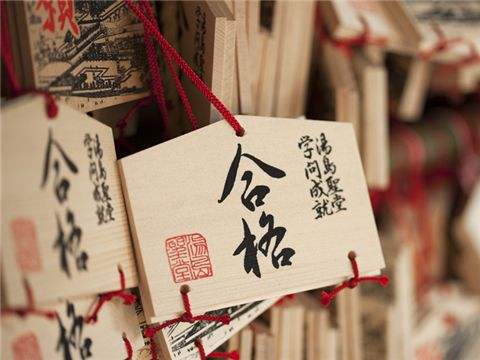 願
湯島聖堂
学問成就
合格
湯島聖堂
学問成就
合格
格